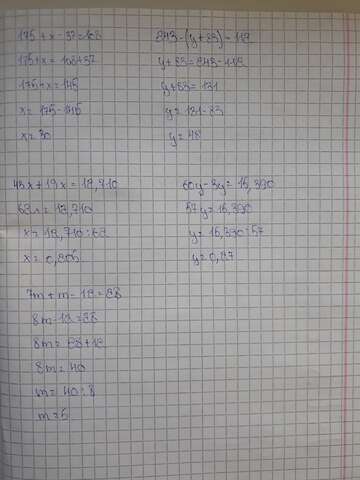 175 + x - 37 = 108
175 + x = 108 + 37
175 + x = 145
x = 175 - 145
x = 30
243 - (y + 83) = 112
y + 83 = 243 - 112
y + 83 = 131
y = 131 - 83
y = 48
43x + 19x = 12,710
62x = 12,710
x = 12,710 : 62
x = 0,205
60y - 3y = 15,390
57y = 15,390
y = 15,390 : 57
y = 0,27
7m + m - 12 = 28
8m - 12 = 28
8m = 28 + 12
8m = 40
m = 40 : 8
m = 5